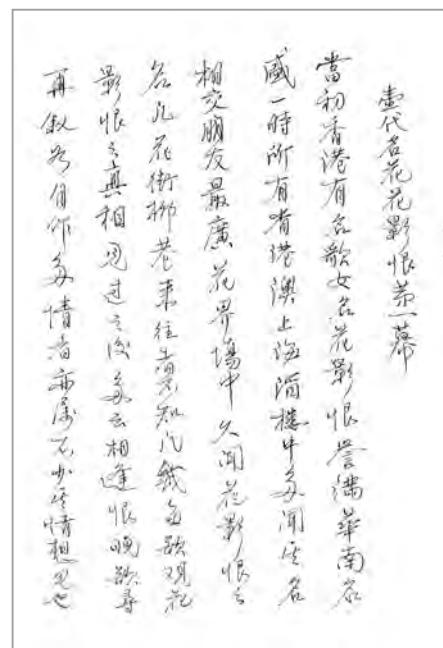 壹代名花花影恨㐧一幕
當初香港有名歌女名花影恨譽滿華南名
盛一時所有省港澳上海酒樓中多聞其名
相交朋友最廣花界場中久聞花影恨之
名凡花街柳巷来往知凡欲观花
影恨之真相見过之後多云相逢恨晚欲尋
再叙者自作多情者亦屬不少其情想見也